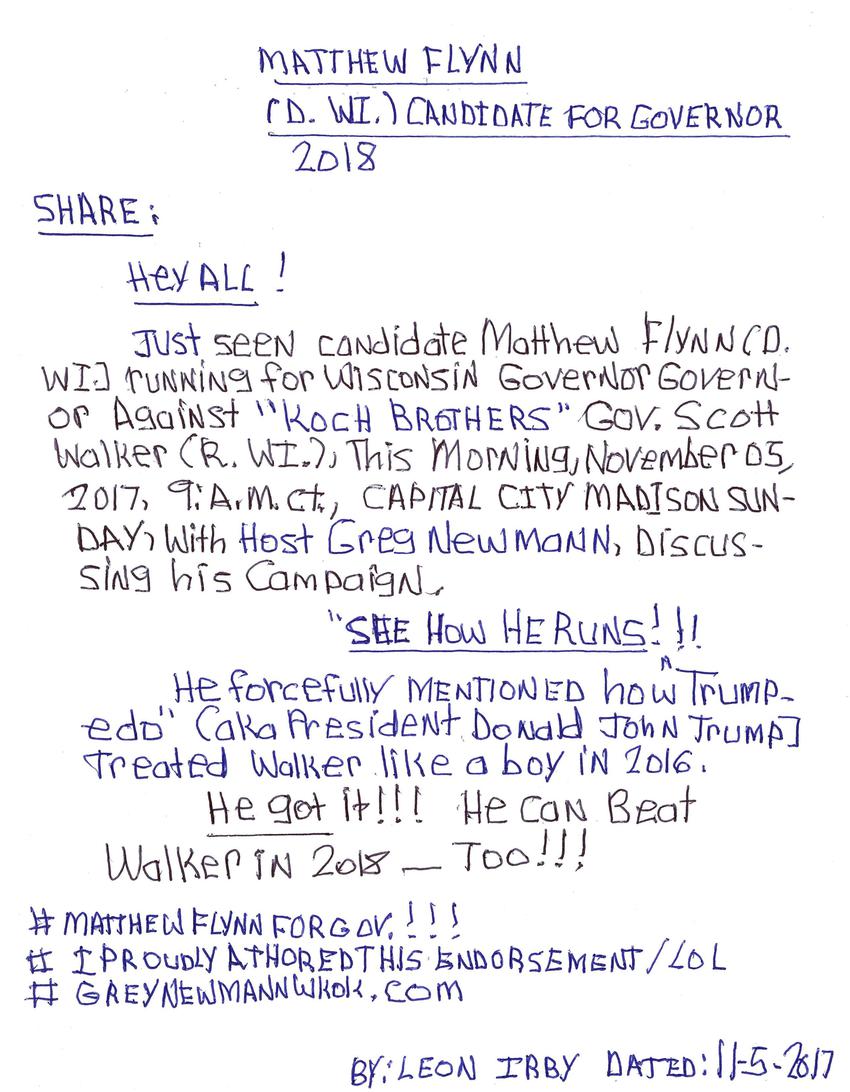 MATTHEW FLYNN
(D. WI.) CANDIDATE FOR GOVERNOR
2018
SHARE:
Hey ALL !
Just seen candidate Matthew Flynn (D.
WI.] running for Wisconsin Governor Govern-
or Against "KOCH BROTHERS" Gov. Scott
Walker (R. WI.), This Morning, November 05,
2017, 9: A.M. ct., CAPITAL CITY MADISON SUN-
DAY, With Host Greg Newmann, Discus-
sing his Campaign.
"SEE HOW HE RUNS!!!
He forcefully MENTIONED how "Trump-
edo" (aka President Donald John Trump]
treated Walker like a boy in 2016.
He got it!!! He can Beat
Walker in 2018 — Too!!!
# MATTHEW FLYNN FOR GOV. !!!
# I PROUDLY ATHORED THIS ENDORSEMENT/LOL
# GREYNEWMANNWKOK.COM
BY: LEON IRBY DATED: 11-5-2017